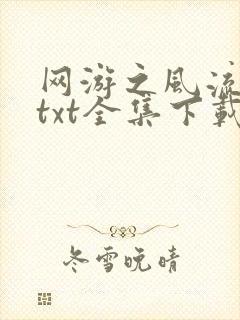 网游之风流
txt全集下载
冬雪晚晴